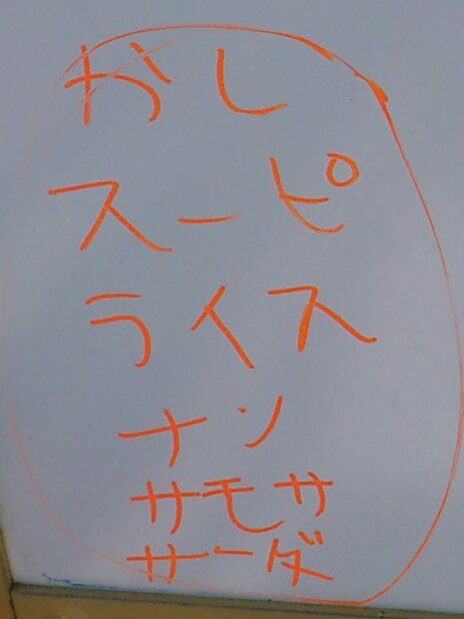 かし
スーピ
ライス
ナン
サモサ
サーダ